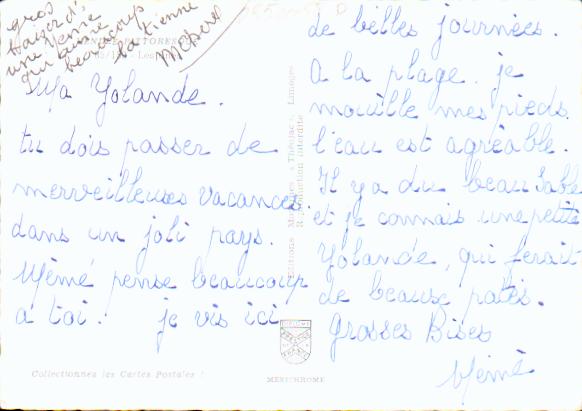 gros
baiser d'
une Mémé
qui t'aime
beaucoup
la tienne
Ma Yolande.
tu dois passer de
merveilleuses vacances.
dans un joli pays.
Mémé pense beaucoup
a toi. je vis ici
de belles journées.
A la plage. je
mouille mes pieds.
l'eau est agréable.
Il y a du beau sable
et je connais une petite
Yolande, qui ferait
de beaux patés.
grosses Bises
Mémé
Collectionnez les Cartes Postales !
MEXICHROME
Editions « Théojac », Limoges
Reproduction interdite